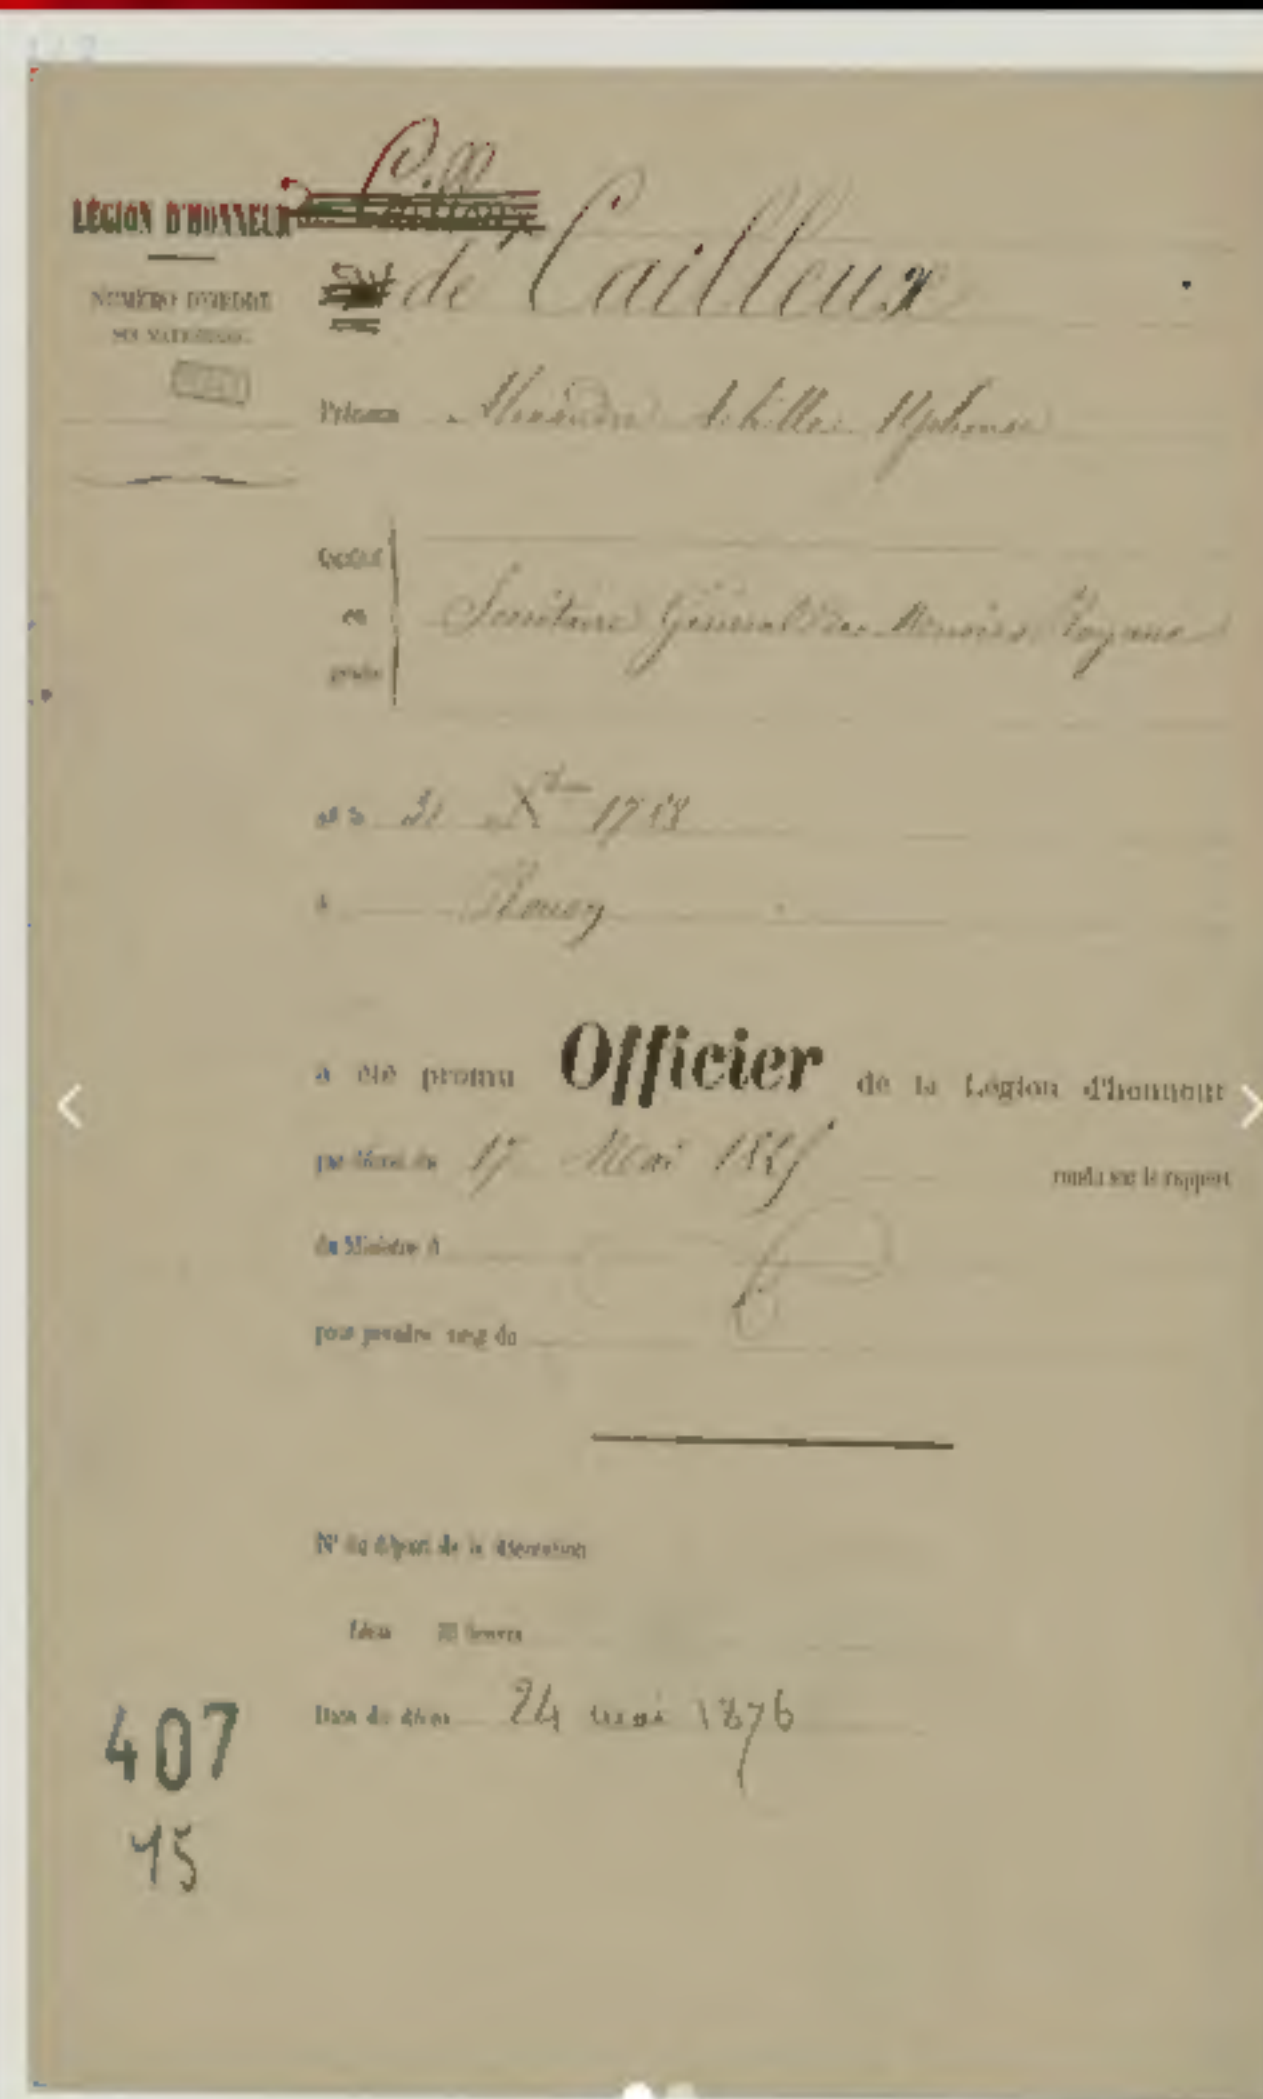 1 / 2
Caill
LÉGION D'HONNEUR
de Cailleux
NUMÉRO D'ORDRE
DES MATRICULES.
Prénoms Alexandre Achille Alphonse
Qualité
ou
grade
Secrétaire Général des Musées Royaux
né le 31 Xbre 1788
à Rouen
a été promu Officier de la Légion d'honneur
par décret du 17 Mai 1825 rendu sur le rapport
du Ministre d
pour prendre rang du
N° du départ de la décoration
Idem du brevet
Date du décès 24 mai 1876
407
45